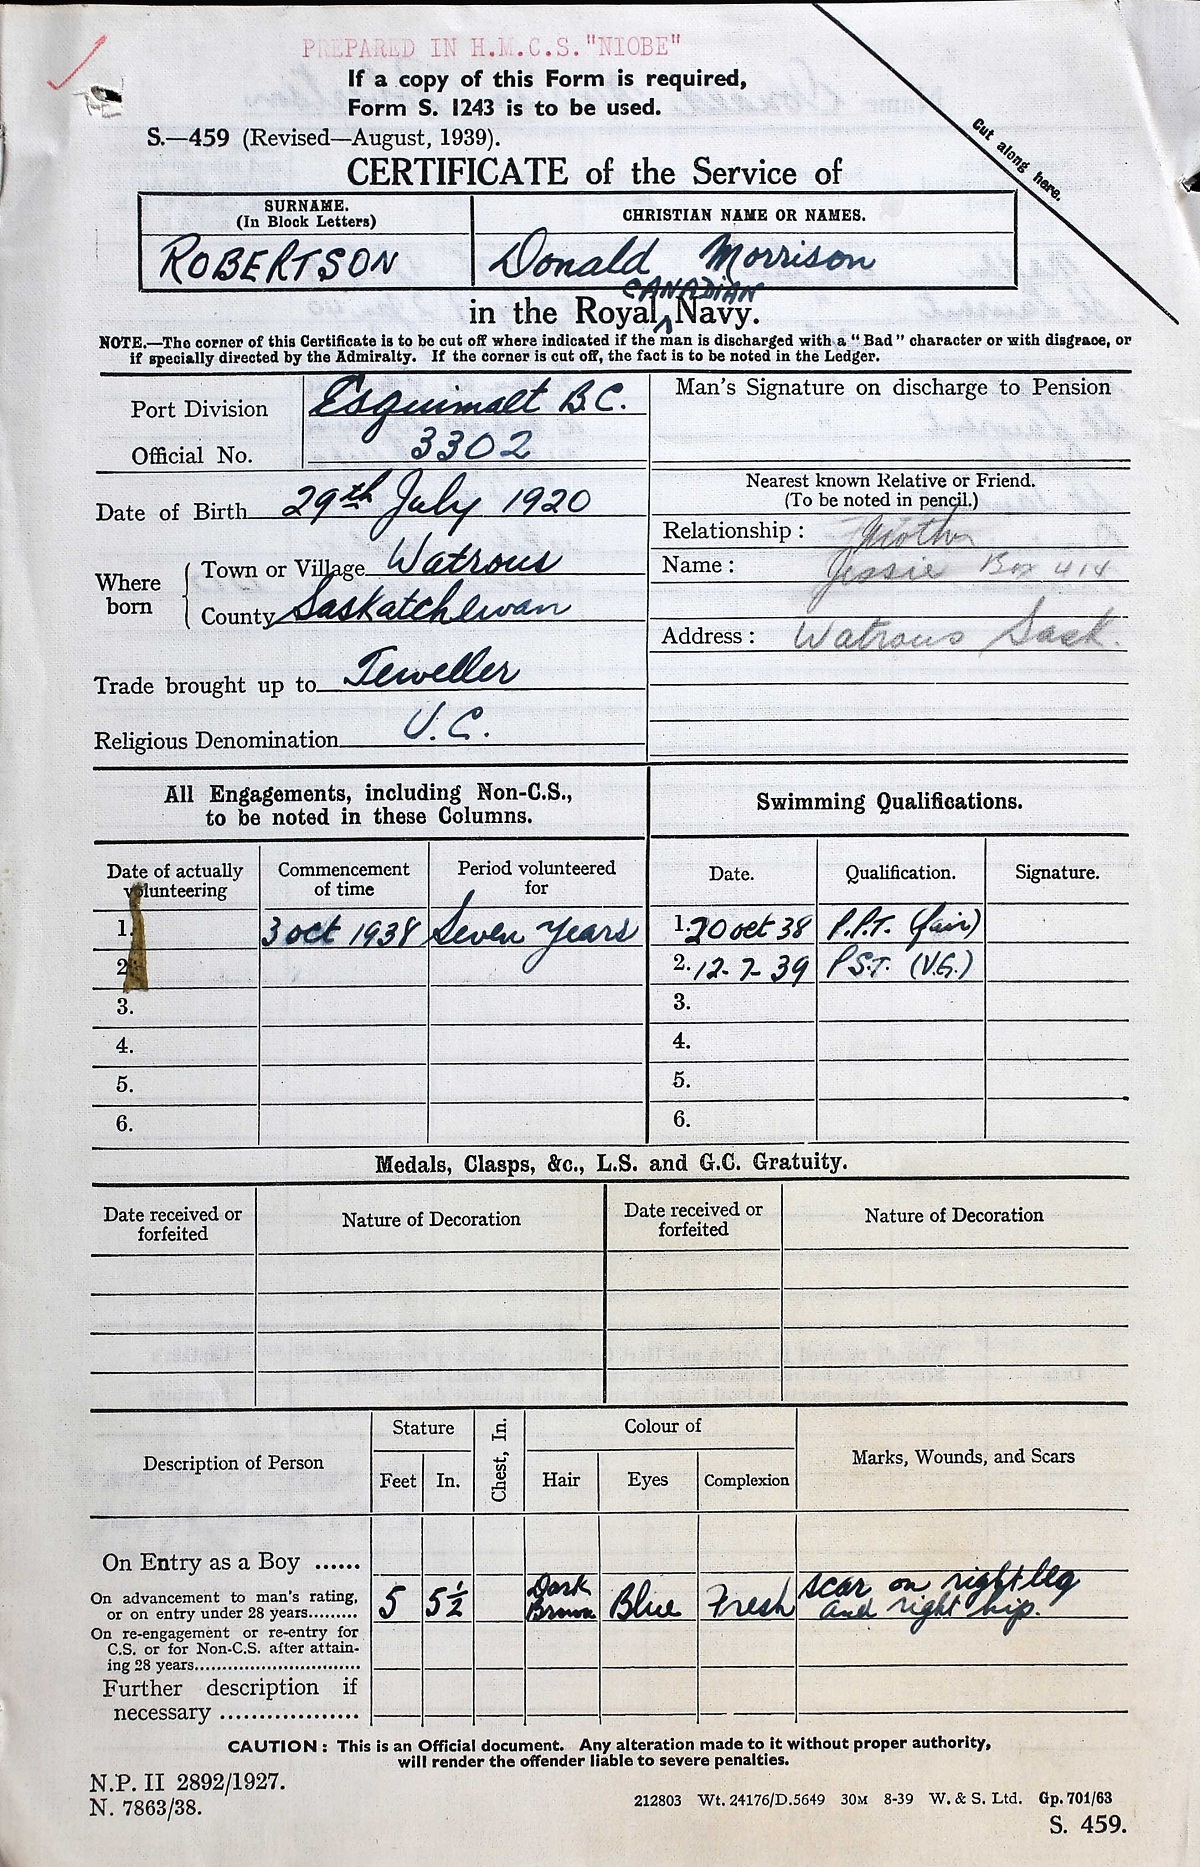 PREPARED IN H.M.C.S. "NIOBE"
If a copy of this Form is required,
Form S. 1243 is to be used.
S.—459 (Revised—August, 1939).
Cut along here.
CERTIFICATE of the Service of
SURNAME.
(In Block Letters)
CHRISTIAN NAME OR NAMES.
ROBERTSON
Donald Morrison
CANADIAN
in the Royal Navy.
NOTE.—The corner of this Certificate is to be cut off where indicated if the man is discharged with a "Bad" character or with disgrace, or
if specially directed by the Admiralty. If the corner is cut off, the fact is to be noted in the Ledger.
Port Division Esquimalt B.C.
Official No. 3302
Man's Signature on discharge to Pension
Date of Birth 29th July 1920
Where born
Town or Village Watrous
County Saskatchewan
Trade brought up to Jeweller
Religious Denomination U.C.
Nearest known Relative or Friend.
(To be noted in pencil.)
Relationship : Mother
Name : Jessie Box 414
Address : Watrous Sask.
All Engagements, including Non-C.S.,
to be noted in these Columns.
Swimming Qualifications.
Date of actually volunteering
Commencement of time
Period volunteered for
Date.
Qualification.
Signature.
1. 3 Oct 1938 Seven Years
1. 20 Oct 38 P.P.T. (fair)
2.
2. 12-7-39 P.S.T. (V.G.)
3.
3.
4.
4.
5.
5.
6.
6.
Medals, Clasps, &c., L.S. and G.C. Gratuity.
Date received or forfeited
Nature of Decoration
Date received or forfeited
Nature of Decoration
Description of Person
Stature
Feet
In.
Chest, In.
Colour of
Hair
Eyes
Complexion
Marks, Wounds, and Scars
On Entry as a Boy ......
On advancement to man's rating,
or on entry under 28 years.........
5 5½ Dark Brown Blue Fresh Scar on right leg and right hip.
On re-engagement or re-entry for
C.S. or for Non-C.S. after attain-
ing 28 years..............................
Further description if
necessary ..................
CAUTION : This is an Official document. Any alteration made to it without proper authority,
will render the offender liable to severe penalties.
N.P. II 2892/1927.
N. 7863/38.
212803 Wt. 24176/D.5649 30M 8-39 W. & S. Ltd. Gp. 701/63
S. 459.